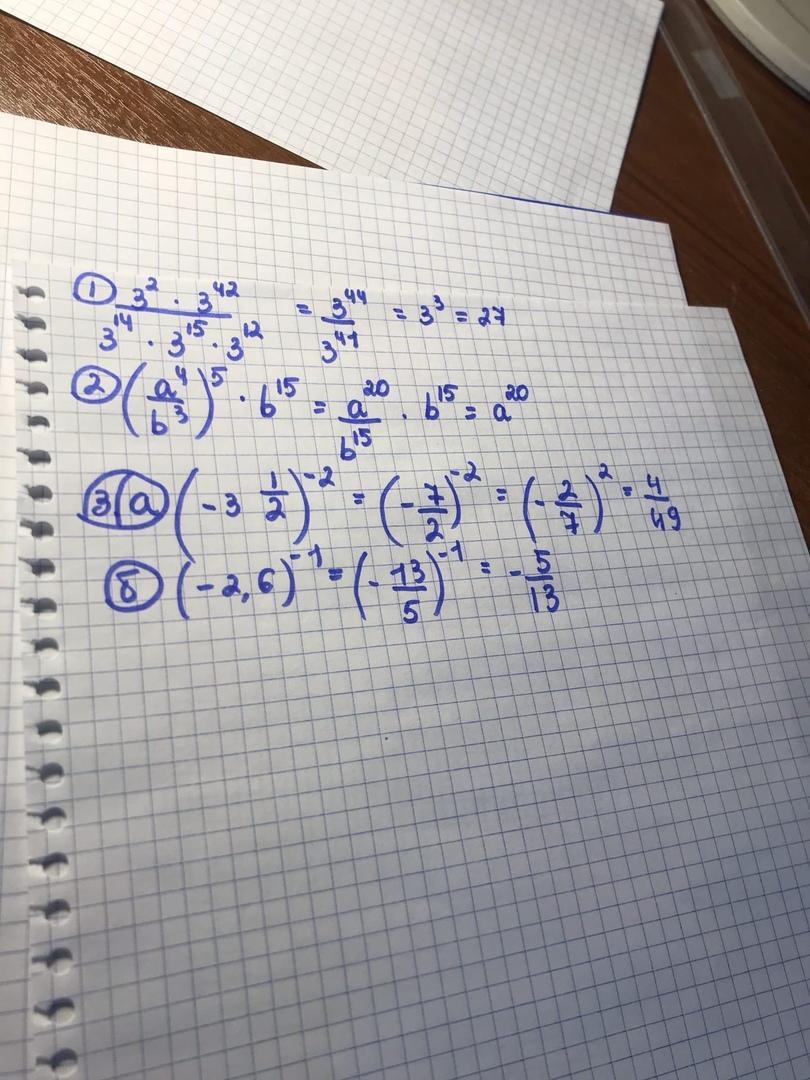 ① (3² · 3⁴²)/(3¹⁴ · 3¹⁵ · 3¹²) = 3⁴⁴/3⁴¹ = 3³ = 27
② (a⁴/b³)⁵ · b¹⁵ = a²⁰/b¹⁵ · b¹⁵ = a²⁰
3(a) (-3 1/2)⁻² = (-7/2)⁻² = (-2/7)² = 4/49
б) (-2,6)⁻¹ = (-13/5)⁻¹ = -5/13